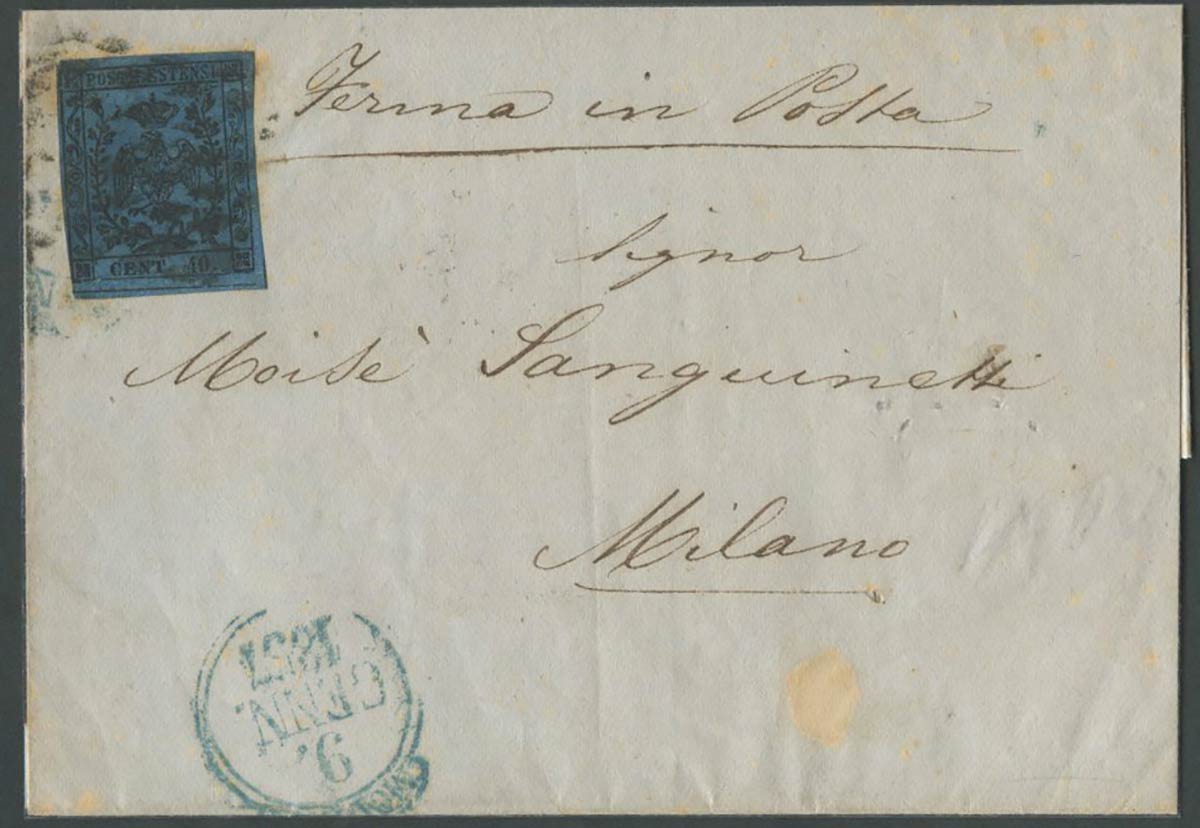 POSTE ESTENSI
CENT. 40.
Ferma in Posta
Signor
Moisè Sanguinetti
Milano
9.
GENN.
1857